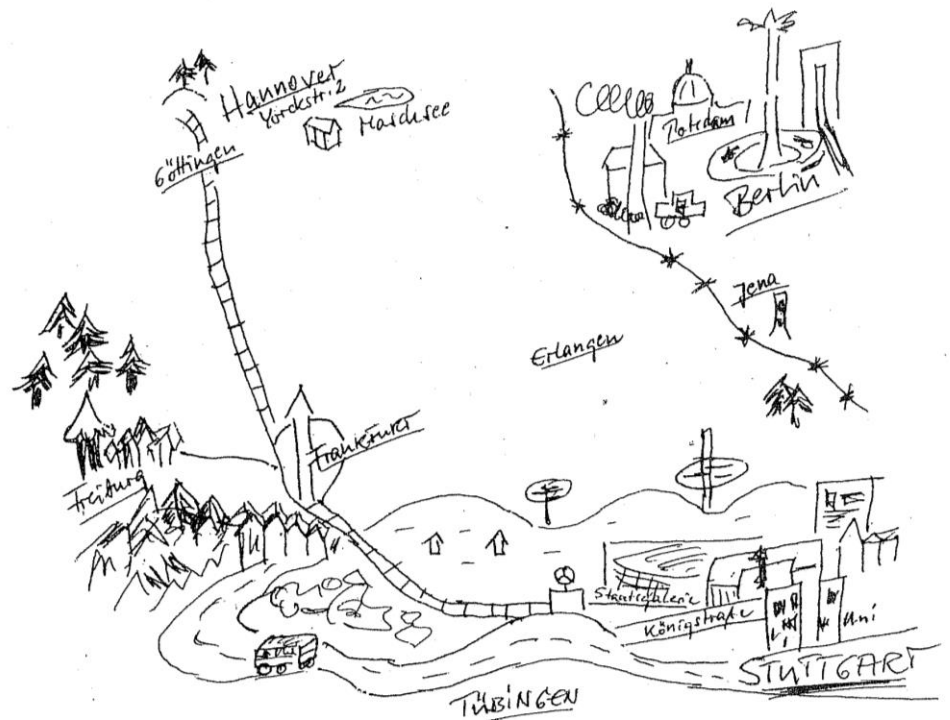 Hannover
Yorckstr. 2
Maschsee
Göttingen
Potsdam
Berlin
Jena
Erlangen
Frankfurt
Freiburg
Staatsgalerie
Königstraße
Uni
STUTTGART
TÜBINGEN